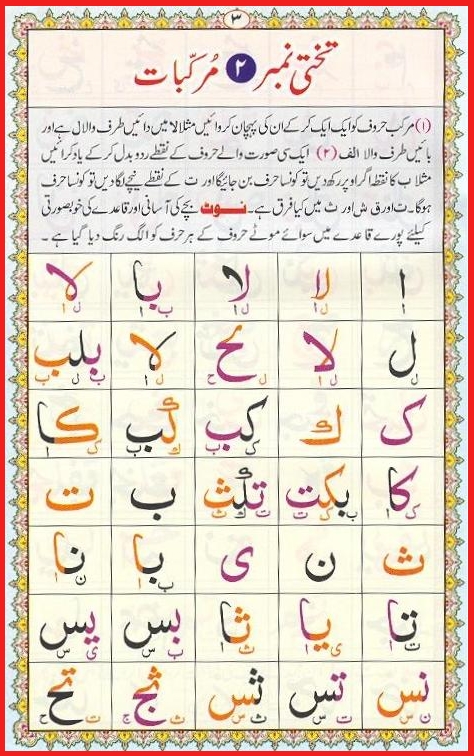 ۳
تختی نمبر ۲ مرکّبات
(۱) مرکب حروف کو ایک ایک کر کے ان کی پہچان کروائیں مثلا لا میں دائیں طرف والا ل ہے اور
بائیں طرف والا الف (۲) ایک سی صورت والے حروف کے نقطے ردو بدل کر کے یاد کرائیں
مثلا ب کا نقطہ اگر اوپر رکھ دیں تو کونسا حرف بن جائیگا اور ت کے نقطے نیچے لگا دیں تو کونسا حرف
ہوگا۔ ت اور ق ش اور ث میں کیا فرق ہے۔ نوٹ بچے کی آسانی اور قاعدے کی خوبصورتی
کیلئے پورے قاعدے میں سوائے موٹے حروف کے ہر حرف کو الگ رنگ دیا گیا ہے۔
ا لا لا با لا
ل ا ل ا ب ا ل ا
ل لا لح لا بلب
ل ا ل ح ل ا ب ل ب
ک ك کب كب کا
ک ب ك ب ک ا
کا بکت تلث ب ت
ک ا ب ک ت ت ل ث
ث ن ی با نا
ب ا ن ا
تا یا ثا بس یس
ت ا ی ا ث ا ب ی
نس تس ثس ثج تح
ن ت ث ث ج ت ح